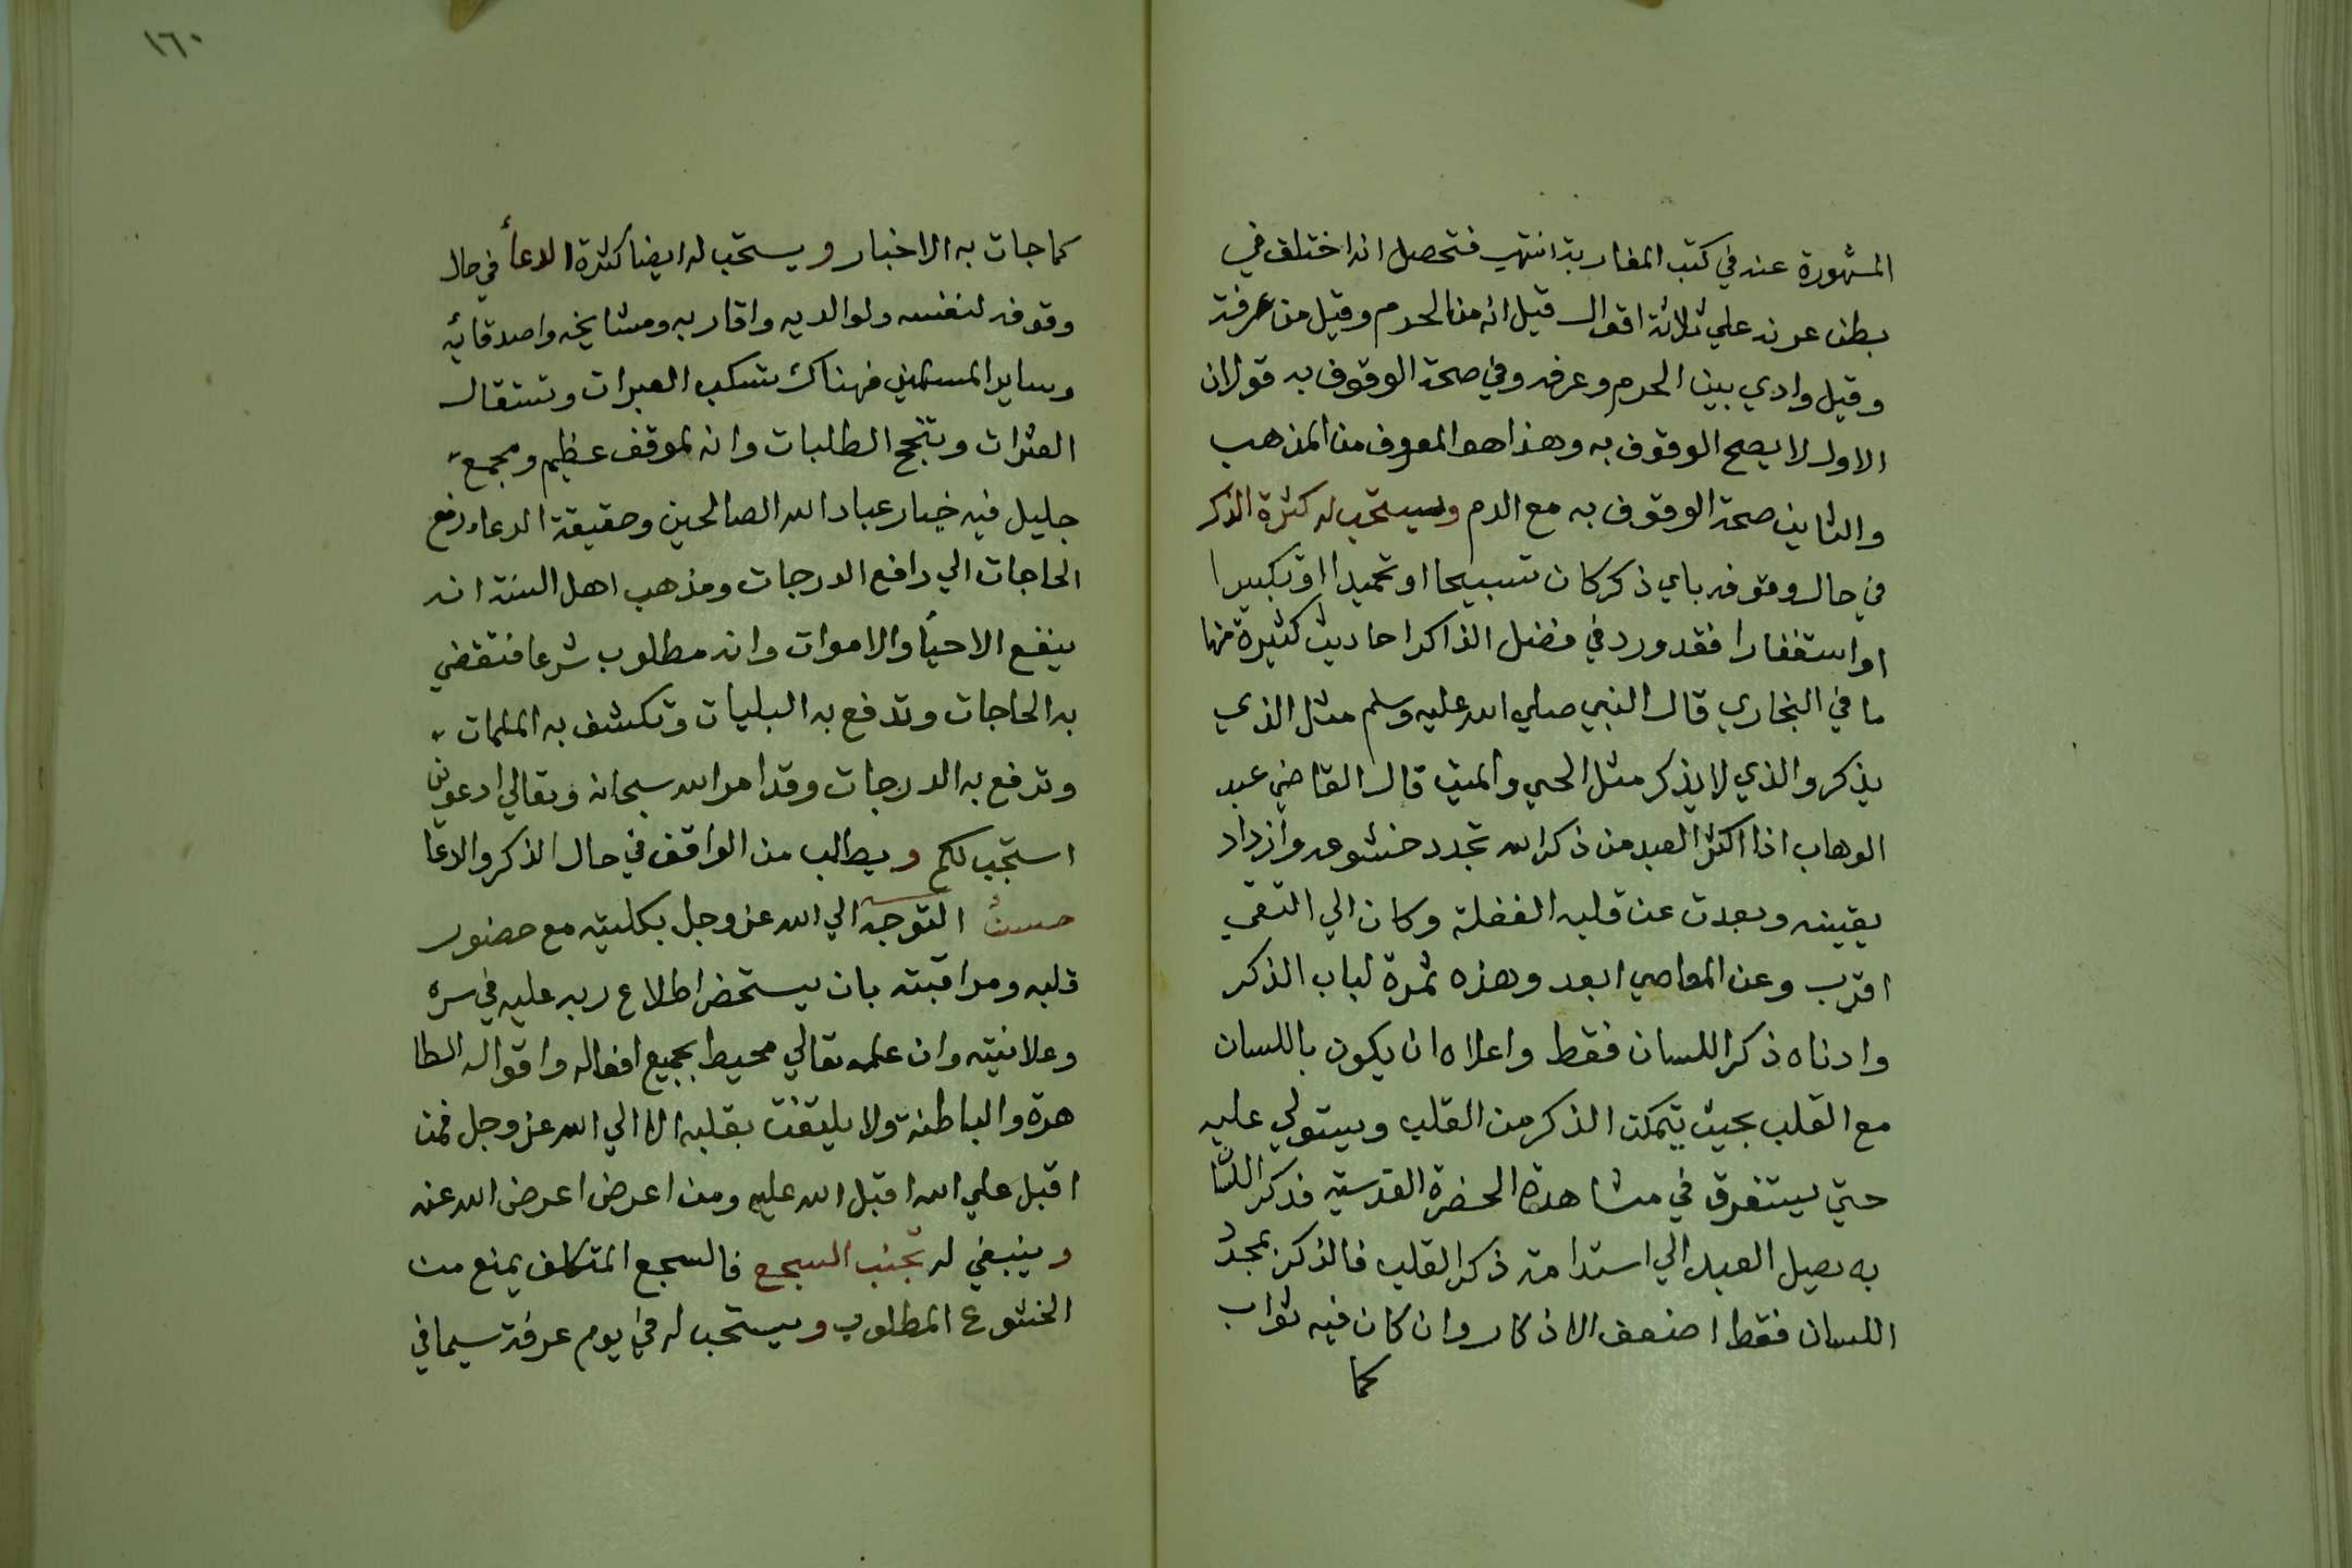 المشهورة عنه في كتب المغاربة انتهي فتحصل انه اختلف في
بطن عرنه علي ثلاثة اقوال قيل انه من الحرم وقيل من عرفة
وقيل وادي بين الحرم وعرفه وفي صحة الوقوف به قولان
الاول لا يصح الوقوف به وهذا هو المعروف من المذهب
والثاني صحة الوقوف به مع الدم ويستحب له كثرة الذكر
في حال وقوفه باي ذكر كان تسبيحا او تحميدا او تكبيرا
او استغفارا فقد ورد في فضل الذاكر احاديث كثيرة منها
ما في البخاري قال النبي صلي الله عليه وسلم مثل الذي
يذكر والذي لا يذكر مثل الحي والميت قال القاضي عبد
الوهاب اذا اكثر العبد من ذكر الله تجدد خشوعه وازداد
يقينه وبعدت عن قلبه الغفلة وكان الي التقي
اقرب وعن المعاصي ابعد وهذه ثمرة لباب الذكر
وادناه ذكر اللسان فقط واعلاه ان يكون باللسان
مع القلب بحيث يتمكن الذكر من القلب ويستولي عليه
حتي يستغرق في مشاهدة الحضرة القدسية فذكر اللسا
به يصل العبد الي استدامة ذكر القلب فالذكر بمجرد
اللسان فقط اضعف الاذكار وان كان فيه ثواب
كما
١٦٠
كما جات به الاخبار ويستحب له ايضا كثرة الدعأ في حال
وقوفه لنفسه ولوالديه واقاربه ومشايخه واصدقائه
وساير المسلمين فهناك تسكب العبرات وتستقال
العثرات وتنجح الطلبات وانه لموقف عظيم ومجمع
جليل فيه خيار عباد الله الصالحين وحقيقة الدعاء رفع
الحاجات الي رافع الدرجات ومذهب اهل السنة انه
ينفع الاحيأ والاموات وانه مطلوب شرعا فتقضي
به الحاجات وتدفع به البليات وتكشف به الملمات
وترفع به الدرجات وقد امر الله سبحانه وتعالي ادعوني
استجب لكم ويطلب من الواقف في حال الذكر والدعا
حسن التوجه الي الله عز وجل بكليته مع حضور
قلبه ومراقبته بان يستحضر اطلاع ربه عليه في سره
وعلانيته وان علمه تعالي محيط بجميع افعاله واقواله الظا
هرة والباطنة ولا يلتفت بقلبه الا الي الله عز وجل فمن
اقبل علي الله اقبل الله عليه ومن اعرض اعرض الله عنه
وينبغي له تجنب السجع فالسجع المتكلف يمنع من
الخشوع المطلوب ويستحب له في يوم عرفة سيما في